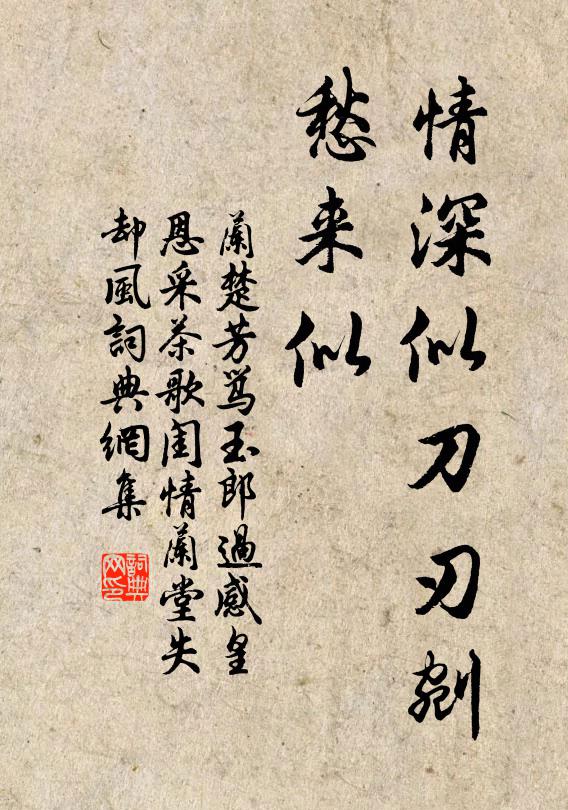 情深似刀刃剜
愁来似
蘭楚芳骂玉郎過感皇
恩采茶歌閨情蘭堂失
却風詞典網集
詞典
网印